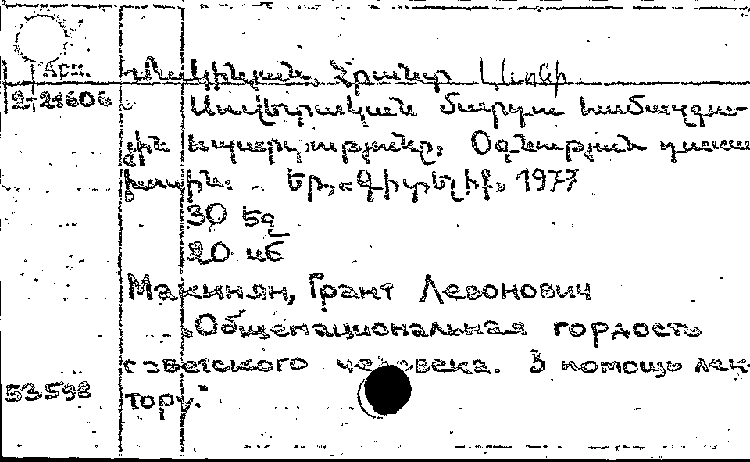 Арм. Մակինյան, Հրանտ Լևոնի
2-21606 Սովետական մարդու համազգա-
յին հպարտությունը: Օգնություն դասա
խոսին: Եր., «Գիտելիք», 1977
30 էջ
20 սմ
Макинян, Грант Левонович
„Общенациональная гордость
советского человека. В помощь лек-
53598 тору."